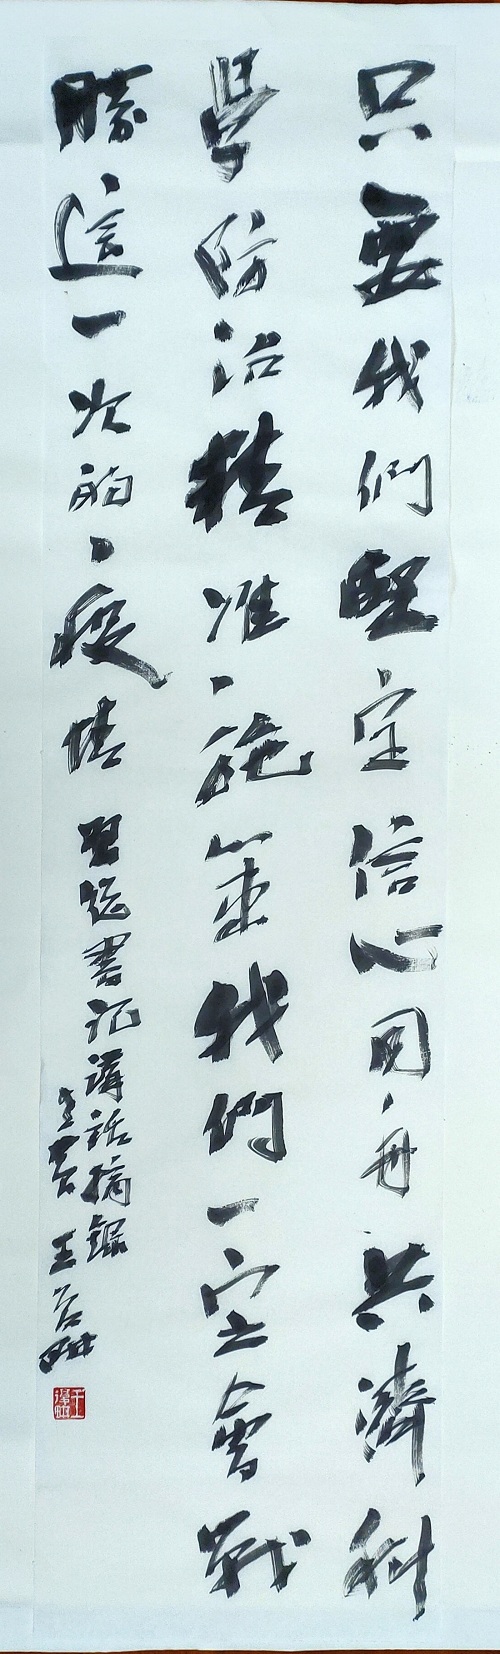 只要我們堅定信心同舟共濟科
學防治精准施策我們一定會戰
勝這一次的疫情
習總書記講話摘錄
王